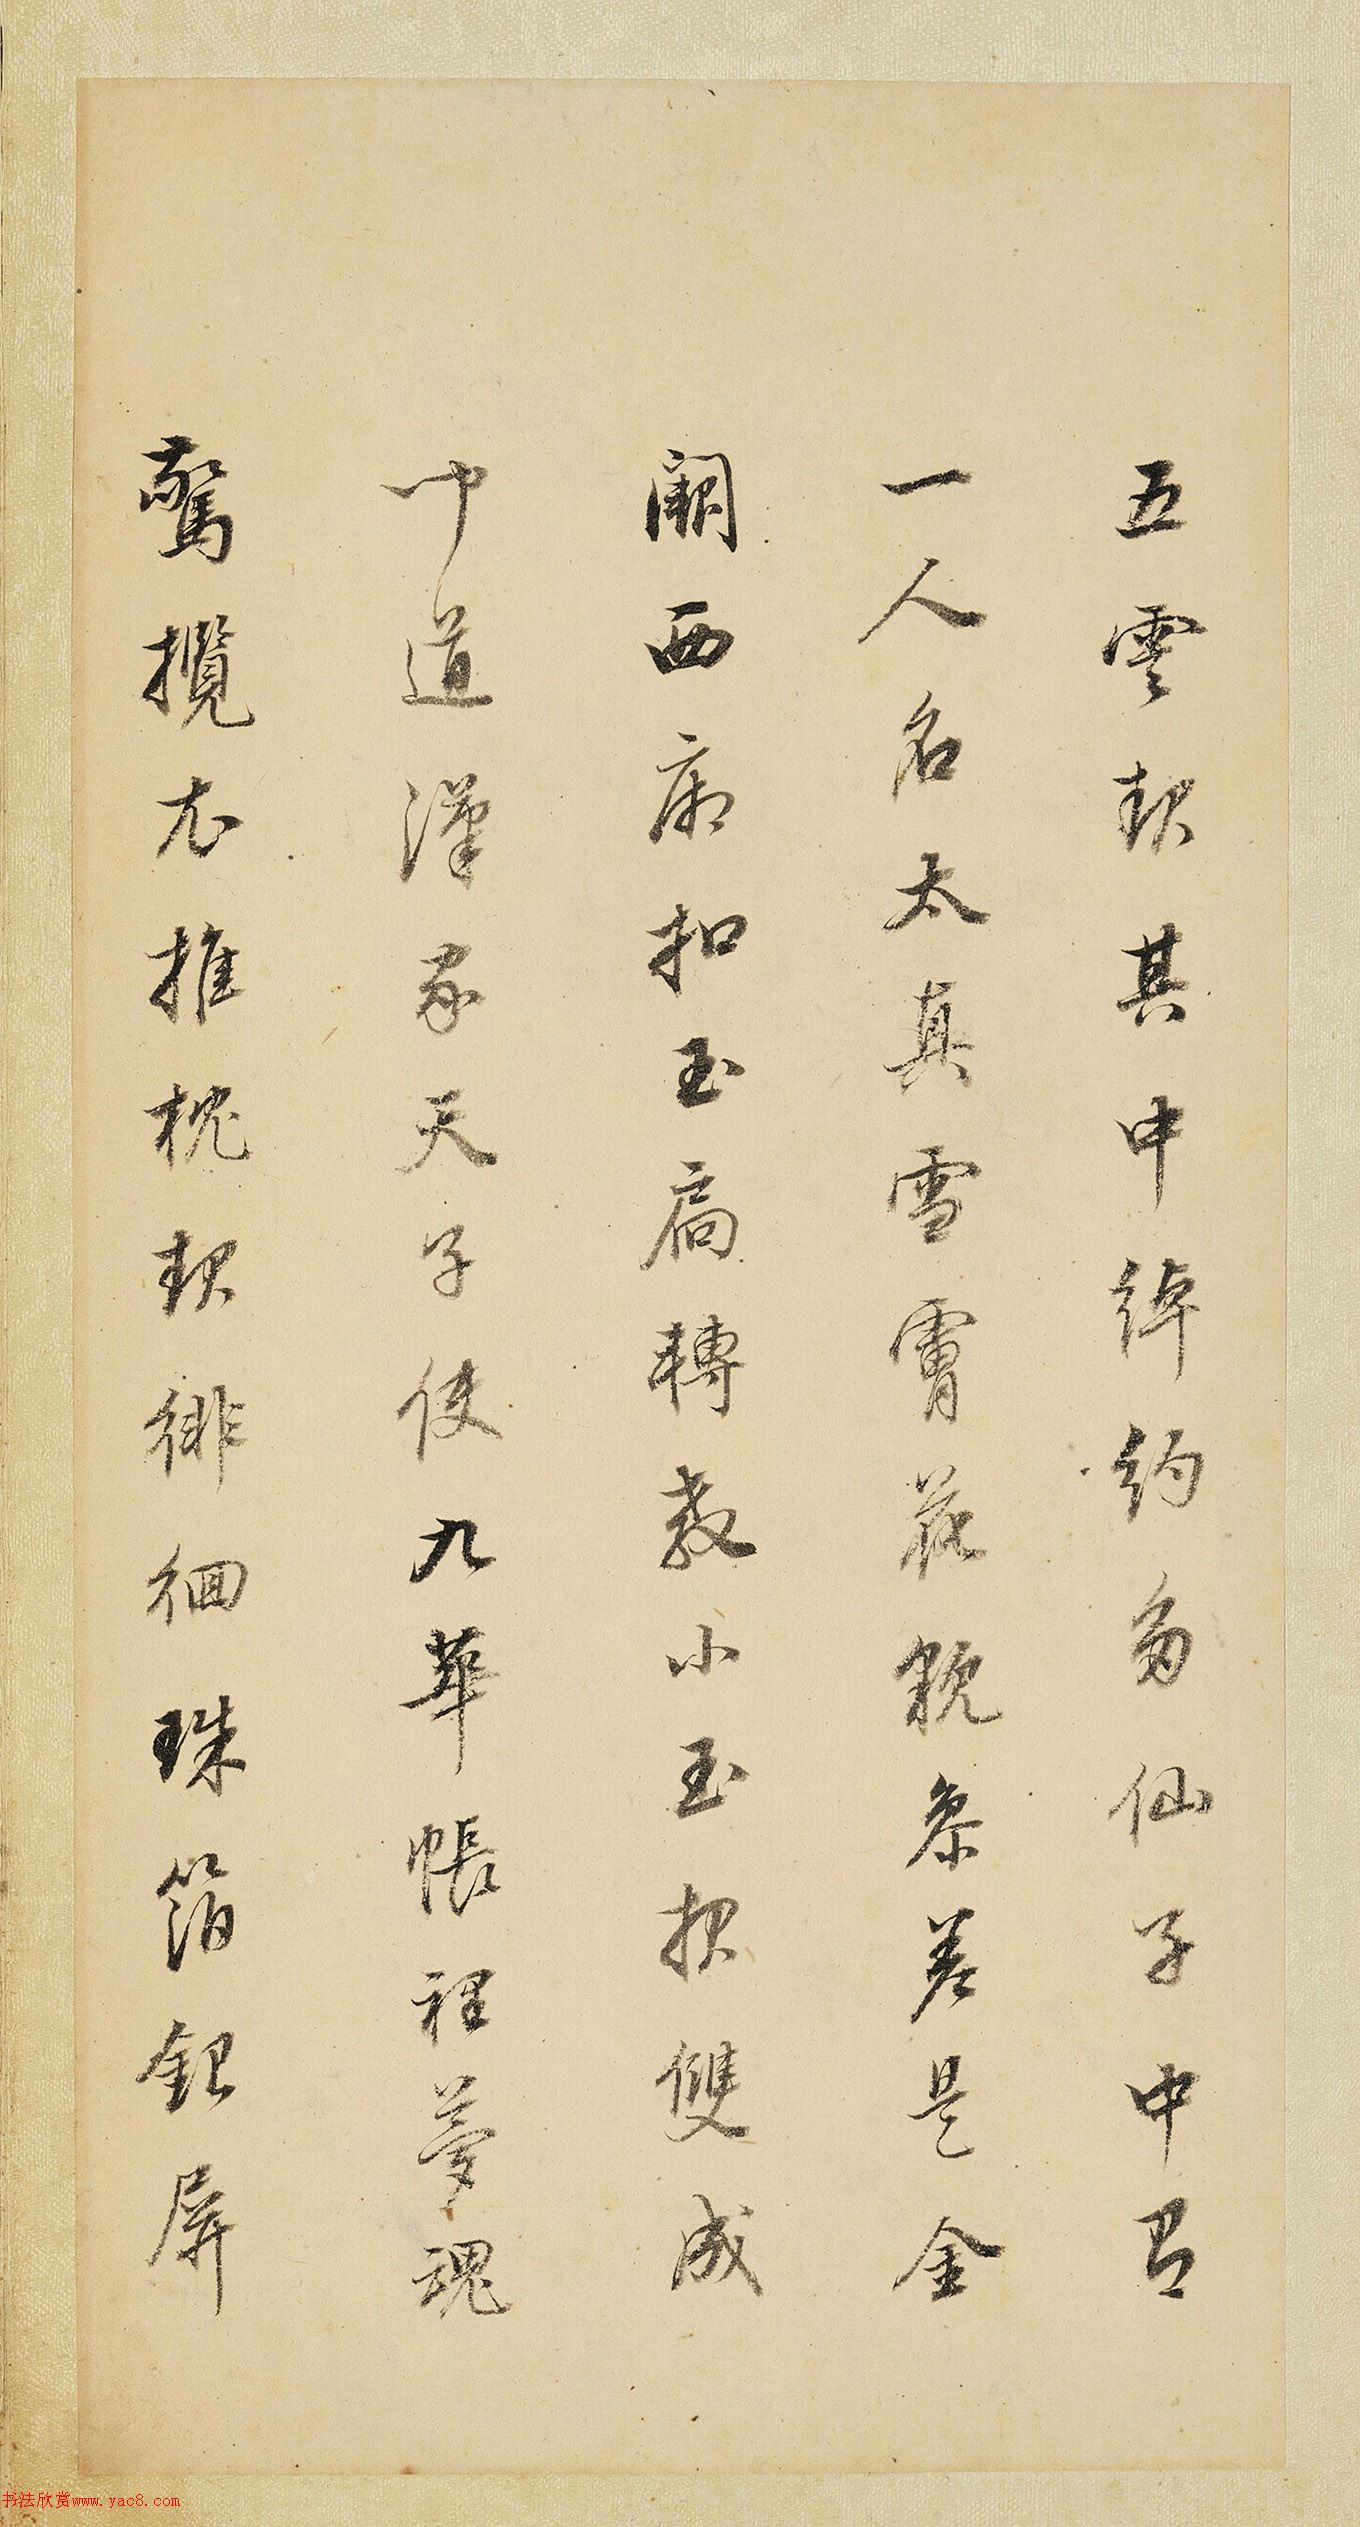 五雲起其中綽約多仙子中有
一人名太真雪膚花貌參差是金
闕西廂扣玉扃轉教小玉報雙成
聞道漢家天子使九華帳裡夢魂
驚攬衣推枕起徘徊珠箔銀屏
书法欣赏www.yac8.com